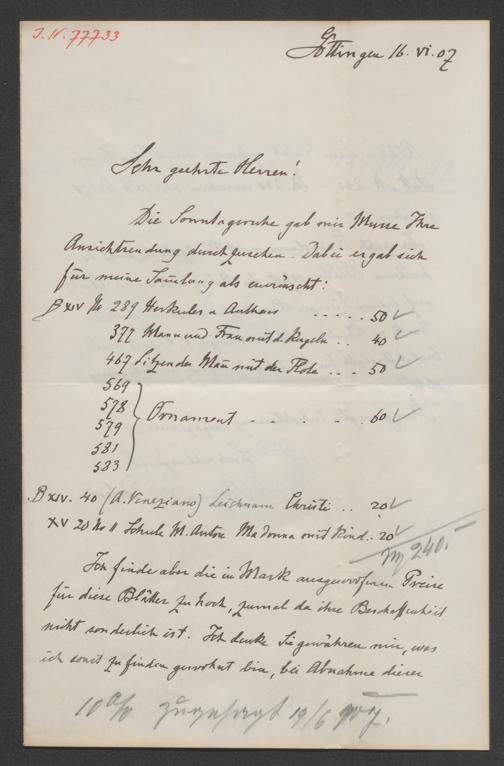 I.N. 77733
Göttingen 16. VI. 07
Sehr geehrte Herren!
Die Sonntagsruhe gab mir Musse Ihre
Ansichtsendung durchzusehen. Dabei ergab sich
für meine Samlung als erwünscht:
B XIV No 289 Herkules u Anthaeus ..... 50 ✓
377 Mann und Frau mit d. Kugeln .. 40 ✓
467 Sitzender Man mit der Flöte ... 50 ✓
569
578
579 } Ornament ..... 60 ✓
581
583
B XIV. 40 (A. Veneziano) Leichnam Christi .. 20 ✓
XV 20 No 11 Schule M. Anton Madonna mit Kind. 20 ✓
M 240.-
Ich finde aber die in Mark ausgeworfenen Preise
für diese Blätter zu hoch, zumal da ihre Beschaffenheit
nicht sonderlich ist. Ich denke Sie gewähren mir, was
ich sonst zu finden gewohnt bin, bei Abnahme dieser
10 % zugesagt 19/6 907.